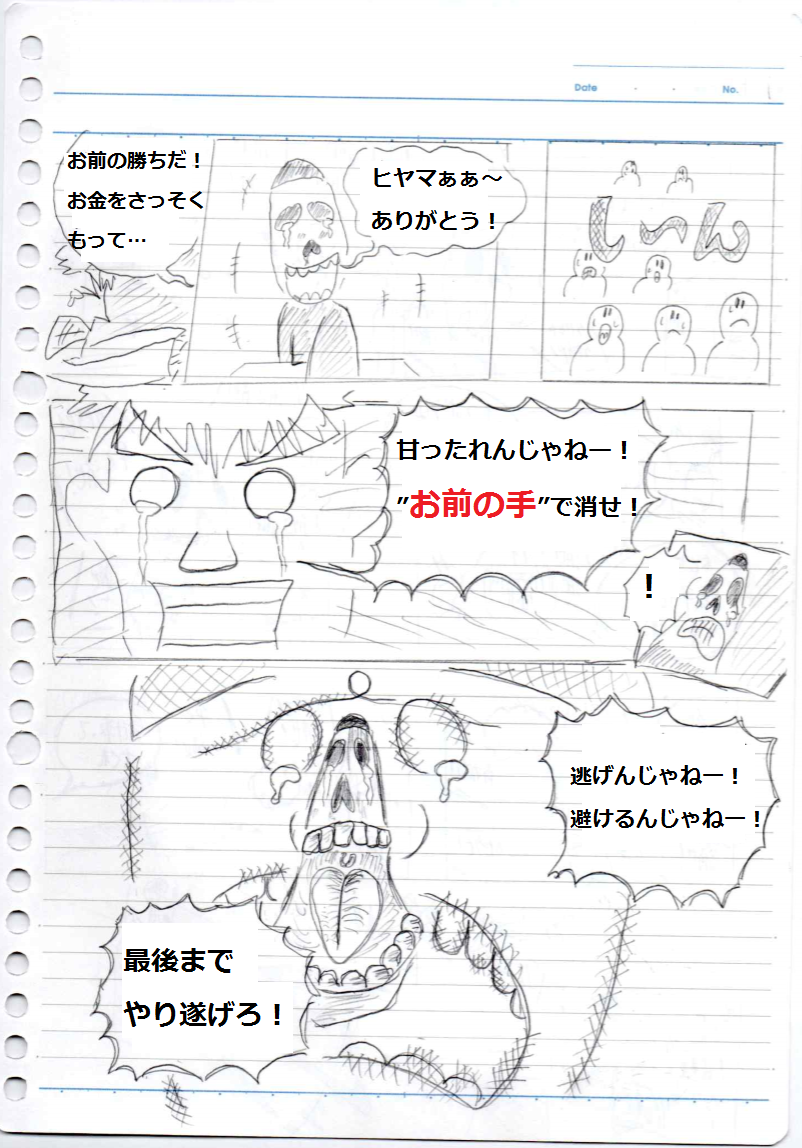 Date
No.
しーん
ヒヤマぁぁ~
ありがとう!
お前の勝ちだ!
お金をさっそく
もって…
甘ったれんじゃねー!
"お前の手"で消せ!
!
逃げんじゃねー!
避けるんじゃねー!
最後まで
やり遂げろ!